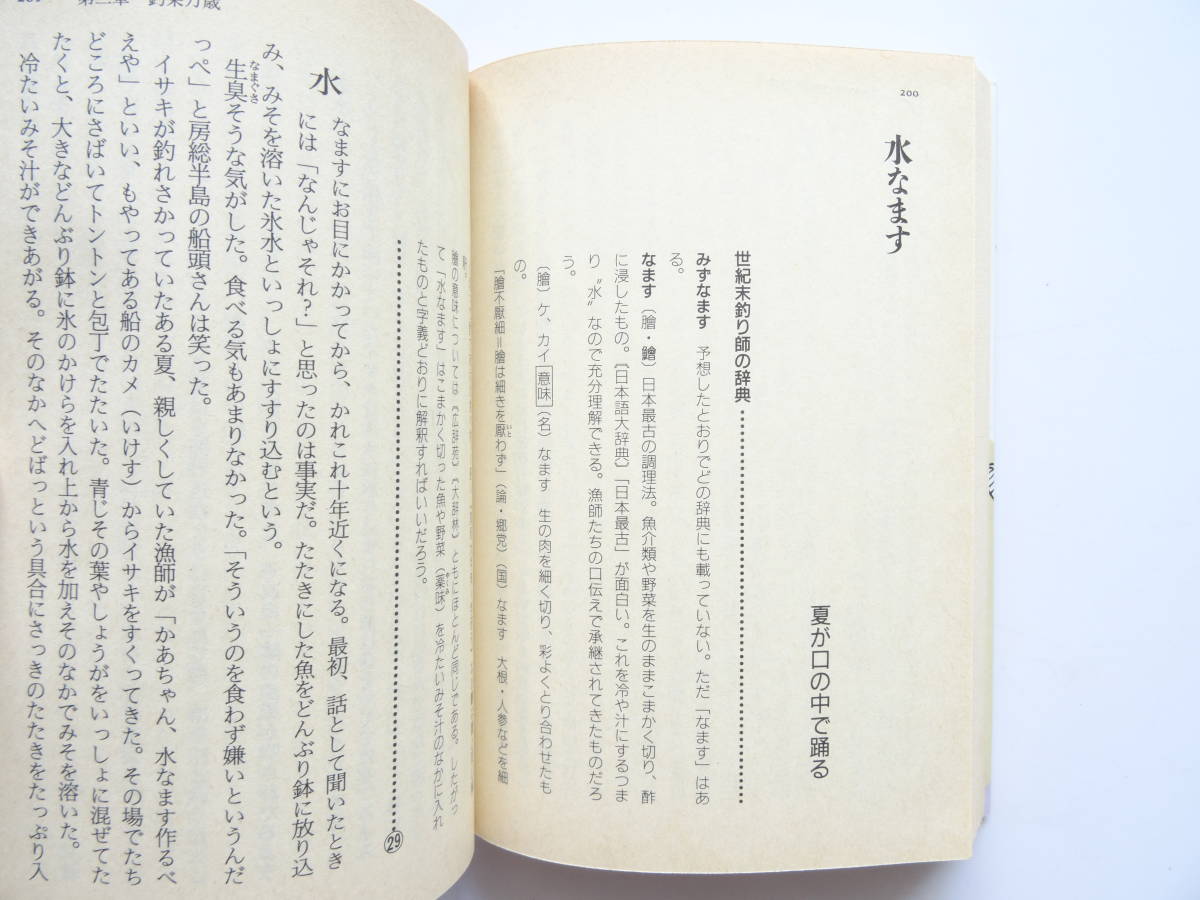 200
水なます
夏が口の中で踊る
世紀末釣り師の辞典
みずなます　予想したとおりでどの辞典にも載っていない。ただ「なます」はあ
る。
なます〔膾・鱠〕日本最古の調理法。魚介類や野菜を生のままこまかく切り、酢
に浸したもの。〔日本語大辞典〕「日本最古」が面白い。これを冷や汁にするつま
り〝水〟なので充分理解できる。漁師たちの口伝えで承継されてきたものだろ
う。
〔膾〕ケ、カイ 意味 (名) なます　生の肉を細く切り、彩よくとり合わせたも
の。
「膾不厭細＝膾は細きを厭わず」(論・郷党) (国) なます　大根・人参などを細
膾の意味については〔広辞苑〕〔大辞林〕ともにほとんど同じである。したがっ
て「水なます」はこまかく切った魚や野菜（薬味）を冷たいみそ汁のなかに入れ
たものと字義どおりに解釈すればいいだろう。
29
水なますにお目にかかってから、かれこれ十年近くになる。最初、話として聞いたとき
には「なんじゃそれ？」と思ったのは事実だ。たたきにした魚をどんぶり鉢に放り込
み、みそを溶いた氷水といっしょにすすり込むという。
生臭そうな気がした。食べる気もあまりなかった。「そういうのを食わず嫌いというんだ
なまぐさ
っぺ」と房総半島の船頭さんは笑った。
イサキが釣れさかっていたある夏、親しくしていた漁師が「かあちゃん、水なます作るべ
えや」といい、もやってある船のカメ（いけす）からイサキをすくってきた。その場でたち
どころにさばいてトントンと包丁でたたいた。青じその葉やしょうがをいっしょに混ぜてた
たくと、大きなどんぶり鉢に氷のかけらを入れ上から水を加えそのなかでみそを溶いた。
冷たいみそ汁ができあがる。そのなかへどばっという具合にさっきのたたきをたっぷり入